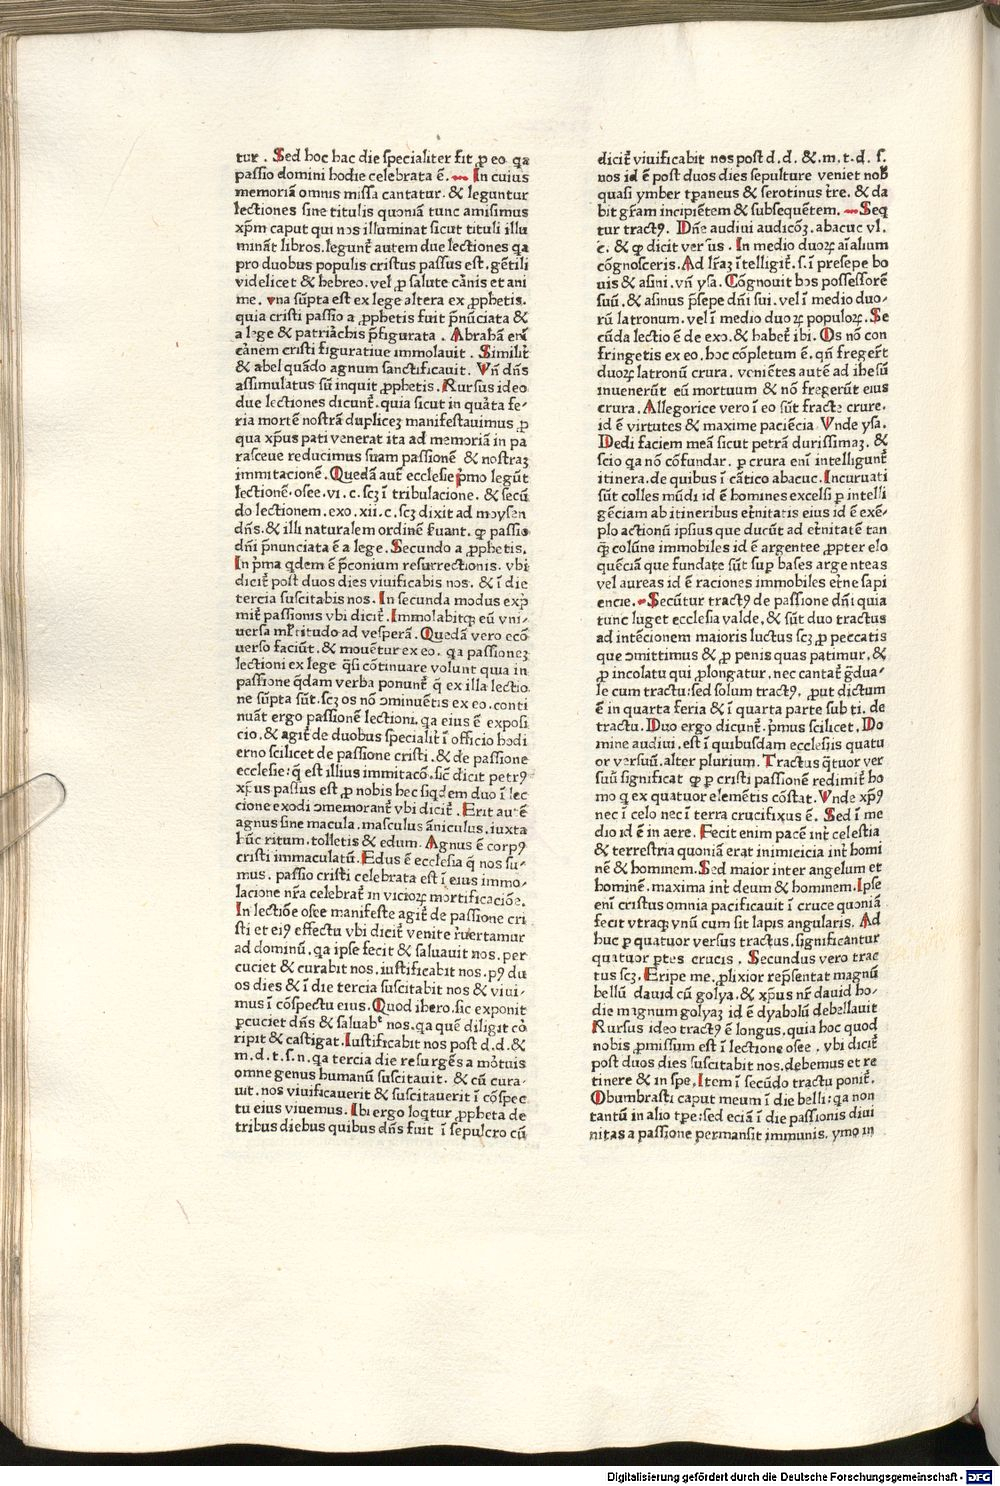 tur . Sed hoc hac die specialiter fit ꝓ eo qa
passio domini hodie celebrata ē. In cuius
memoriā omnis missa cantatur. & leguntur
lectiones sine titulis quoniā tunc amisimus
xp̄m caput qui nos illuminat sicut tituli illu
mināt libros. legunt᷑ autem due lectiones qa
pro duobus populis cristus passus est. gētili
videlicet & hebreo. vel ꝓ salute cārnis et ani
me. vna sūpta est ex lege altera ex ꝓphetis.
quia cristi passio a ꝓphetis fuit p̄nūciata &
a lege & patriārchis p̄figurata . Abrahā em̄
cārnem cristi figuratiue immolauit . Similit᷑
& abel quādo agnum sanctificauit. Vn̄ dn̄s
assimulatus sū inquit ꝓphetis. Rursus ideo
due lectiones dicunt᷑. quia sicut in quārta fe-
ria mortē nostrā duplicez manifestauimus ꝓ
qua xp̄us pati venerat ita ad memoriā in pa
rasceue reducimus suam passionē & nostraz
immitacionē. Quedā aut᷑ ecclesie p̄mo legūt
lectionē. osee. vi. c. scꝫ ī tribulacione. & secū
do lectionem. exo. xii. c. scꝫ dixit ad moysen
dn̄s. & illi naturalem ordinē ẜuant. qꝛ passio
dn̄i p̄nunciata ē a lege. Secundo a ꝓphetis.
In p̄ma qdem ē p̄conium resurrectionis. vbi
dicit᷑ post duos dies viuificabis nos. & ī die
tercia suscitabis nos. In secunda modus exp̄
mit᷑ passionis vbi dicit᷑. Immolabitqꝫ eū vni-
uersa ml᷑titudo ad vesperā. Quedā vero ecō
uerso faciūt. & mouētur ex eo. qa passionez
lectioni ex lege q̄si cōtinuare volunt quia in
passione q̄dam verba ponunt᷑ q̄ ex illa lectio
ne sūpta sūt. scꝫ os nō ꝯminuetis ex eo. conti
nuāt ergo passionē lectioni. qa eius ē exposi
cio. & agit᷑ de duobus specialit᷑ ī officio hodi
erno scilicet de passione cristi. & de passione
ecclesie: q̄ est illius immitacō. sic̄ dicit petrꝰ
xp̄us passus est ꝓ nobis hec siqdem duo ī lec
cione exodi ꝯmemorant᷑ vbi dicit᷑ . Erit aut ē
agnus sine macula. masculus āniculus. iuxta
hūc ritum. tolletis & edum. Agnus ē corpꝰ
cristi immaculatū. Edus ē ecclesia q̄ nos su-
mus. passio cristi celebrata est ī eius immo-
lacione nr̄a celebrat᷑ in vicioꝝ mortificaciōe.
In lectiōe osee manifeste agit᷑ de passione cri
sti et eiꝰ effectu vbi dicit᷑ venite r̄uertamur
ad dominū. qa ipse fecit & saluauit nos. per
cuciet & curabit nos. iustificabit nos. pꝰ du
os dies & ī die tercia suscitabit nos & viui-
mus ī cōspectu eius. Quod ibero. sic exponit
ꝑcuciet dn̄s & saluabᵉ nos. qa quē diligit cō
ripit & castigat. Iustificabit nos post d.d.&
m.d.t.s.n. qa tercia die resurgēs a mōrtuis
omne genus humanū suscitauit. & cū cura-
uit. nos viuificauerit & suscitauerit ī cōspec
tu eius viuemus. Ibi ergo loqtur ꝓpheta de
tribus diebus quibus dn̄s fuit ī sepulcro cū
dicit᷑ viuificabit nos post d.d. &. m. t. d. s.
nos id ē post duos dies sepulture veniet nob̄
quasi ymber tꝑaneus & serotinus t᷑re. & da
bit gr̄am incipiētem & subsequētem. Seq
tur tractꝰ. Dn̄e audiui audicōꝫ. abacuc vl.
c. & qꝛ dicit versus. In medio duoꝝ aīalium
cōgnosceris. Ad lr̄aꝫ ītelligit᷑. s. ī presepe bo
uis & asini. vn̄ ysa. Cōgnouit bos possessorē
suū. & asinus p̄sepe dn̄i sui. vel ī medio duo-
rū latronum. vel ī medio duoꝝ populoꝝ. Se
cūda lectio ē de exo. & habet᷑ ibi. Os nō con
fringetis ex eo. hoc cōpletum ē. qn̄ freger̄t
duoꝝ latronū crura. veniētes autē ad ihesū
inuenerūt eū mortuum & nō fregerūt eius
crura. Allegorice vero ī eo sūt fracte crure.
id ē virtutes & maxime paciēcia. Vnde ysa.
Dedi faciem meā sicut petrā durissimaꝫ. &
scio qa nō cōfundar. ꝑ crura eni intelligunt᷑
itinera. de quibus ī cātico abacuc. Incuruati
sūt colles mūdi id ē homines excelsi ꝑ intelli
gēciam ab itineribus et᷑nitatis eius id ē exē-
plo actionū ipsius que ducūt ad et᷑nitatē tan
qꝫ colūne immobiles id ē argentee ꝓpter elo
quēciā que fundate sūt sup bases argenteas
vel aureas id ē raciones immobiles et᷑ne sapi
encie. Secūtur tractꝰ de passione dn̄i quia
tunc luget ecclesia valde. & sūt duo tractus
ad intēcionem maioris luctus scꝫ ꝓ peccatis
que ꝯmittimus & ꝓ penis quas patimur. &
ꝓ incolatu qui ꝓlongatur. nec cantat᷑ g̃dua-
le cum tractu: sed solum tractꝰ. ꝓut dictum
ē in quarta feria & ī quarta parte sub ti. de
tractu. Duo ergo dicunt᷑. p̄mus scilicet. Do
mine audiui. est ī quibusdam ecclesiis quatu
or versuū. alter plurium. Tractus q̄tuor ver
suū significat qꝛ ꝑ cristi passionē redimit᷑ ho
mo q ex quatuor elemētis cōstat. Vnde xpꝰ
nec ī celo nec ī terra crucifixus ē. Sed ī me
dio id ē in aere. Fecit enim pacē int᷑ celestia
& terrestria quoniā erat inimicicia int᷑ homi
nē & hominem. Sed maior inter angelum et
hominē. maxima int᷑ deum & hominem. Ipse
eni cristus omnia pacificauit ī cruce quoniā
fecit vtraqꝫ vnū cum sit lapis angularis. Ad
huc ꝑ quatuor versus tractus. significantur
quatuor ꝑtes crucis . Secundus vero trac
tus scꝫ. Eripe me. ꝓlixior rep̄sentat magnū
bellū dauid cū golya. & xp̄us nr̄ dauid ho-
die magnum golyaꝫ id ē dyabolū debellauit
Rursus ideo tractꝰ ē longus. quia hoc quod
nobis ꝓmissum est ī lectione osee . vbi dicit᷑
post duos dies suscitabit nos. debemus et re
tinere & in spe. Item ī secūdo tractu ponit᷑.
Obumbrasti caput meum ī die belli: qa non
tantū in alio tꝑe: sed eciā ī die passionis diui
nitas a passione permansit immunis. ymo in
Digitalisierung gefördert durch die Deutsche Forschungsgemeinschaft - DFG